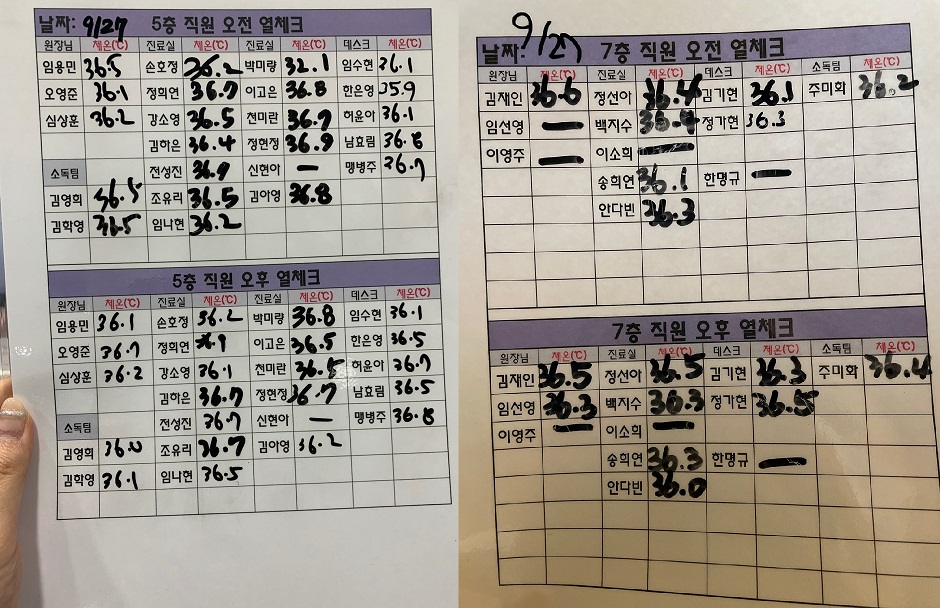 날짜: 9/27 5층 직원 오전 열체크
원장님 체온(℃) 진료실 체온(℃) 진료실 체온(℃) 데스크 체온(℃)
임용민 36.5 손호정 36.2 박미량 32.1 임수현 36.1
오영준 36.1 정희연 36.7 이고은 36.8 한은영 35.9
심상훈 36.2 강소영 36.5 천미란 36.7 허윤아 36.1
김하은 36.4 정현정 36.9 남효림 36.8
소독팀 전성진 36.9 신현아 — 맹병주 36.7
김영희 36.5 조유리 36.5 김아영 36.8
김학영 36.5 임나현 36.2
5층 직원 오후 열체크
원장님 체온(℃) 진료실 체온(℃) 진료실 체온(℃) 데스크 체온(℃)
임용민 36.1 손호정 36.2 박미량 36.8 임수현 36.1
오영준 36.7 정희연 이고은 36.5 한은영 36.5
심상훈 36.2 강소영 36.1 천미란 36.5 허윤아 36.7
김하은 36.7 정현정 36.7 남효림 36.5
소독팀 전성진 36.7 신현아 — 맹병주 36.8
김영희 36.0 조유리 36.7 김아영 36.2
김학영 36.1 임나현 36.5
날짜: 9/27 7층 직원 오전 열체크
원장님 체온(℃) 진료실 체온(℃) 데스크 체온(℃) 소독팀 체온(℃)
김재인 36.6 정선아 36.4 김기현 36.1 주미화 36.2
임선영 — 백지수 36.4 정가현 36.3
이영주 — 이소희 —
송희연 36.1 한명규 —
안다빈 36.3
7층 직원 오후 열체크
원장님 체온(℃) 진료실 체온(℃) 데스크 체온(℃) 소독팀 체온(℃)
김재인 36.5 정선아 36.5 김기현 36.3 주미화 36.4
임선영 36.3 백지수 36.3 정가현 36.5
이영주 — 이소희 —
송희연 36.3 한명규 —
안다빈 36.0